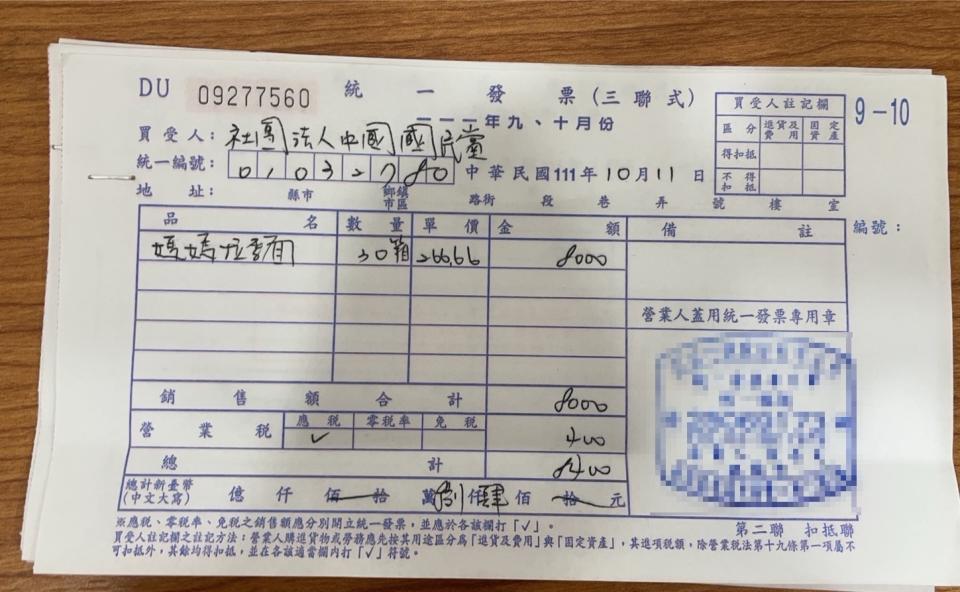 DU 09277560 統一發票(三聯式)
一一一年九、十月份
9-10
買受人註記欄
區分 進貨及費用 固定資產
得扣抵
不得扣抵
買受人:社團法人中國國民黨
統一編號:01032780 中華民國111年10月11日
地址: 縣市 鄉鎮市區 路街 段 巷 弄 號 樓 室
品名 數量 單價 金額 備註 編號:
媽媽拉麵 30箱 266.66 8000
營業人蓋用統一發票專用章
銷售額合計 8000
營業稅 應稅 零稅率 免稅
✓ 400
總計 8400
總計新臺幣(中文大寫) 億 仟 佰 拾 萬 捌仟肆佰 拾 元
※應稅、零稅率、免稅之銷售額應分別開立統一發票,並應於各該欄打「✓」。
第二聯 扣抵聯
買受人註記欄之註記方法:營業人購進貨物或勞務應先按其用途區分為「進貨及費用」與「固定資產」,其進項稅額,除營業稅法第十九條第一項屬不
可扣抵外,其餘均得扣抵,並在各該適當欄內打「✓」符號。